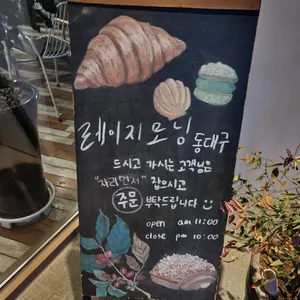 레이지모닝 동대구
드시고 가시는 고객님은
"자리먼저" 잡으시고
주문 부탁드립니다
open am 11:00
close pm 10:00